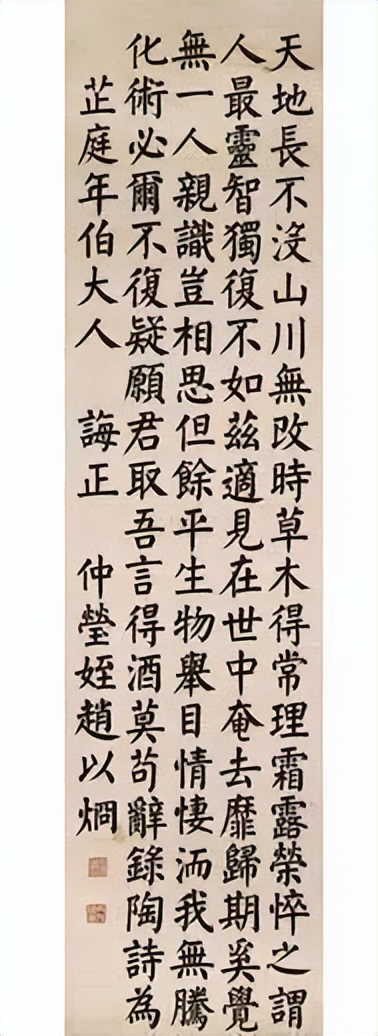 天地長不沒山川無改時草木得常理霜露榮悴之謂
人最靈智獨復不如茲適見在世中奄去靡歸期奚覺
無一人親識豈相思但餘平生物舉目情悽洏我無騰
化術必爾不復疑願君取吾言得酒莫苟辭錄陶詩為
芷庭年伯大人 誨正 仲瑩姪趙以烱